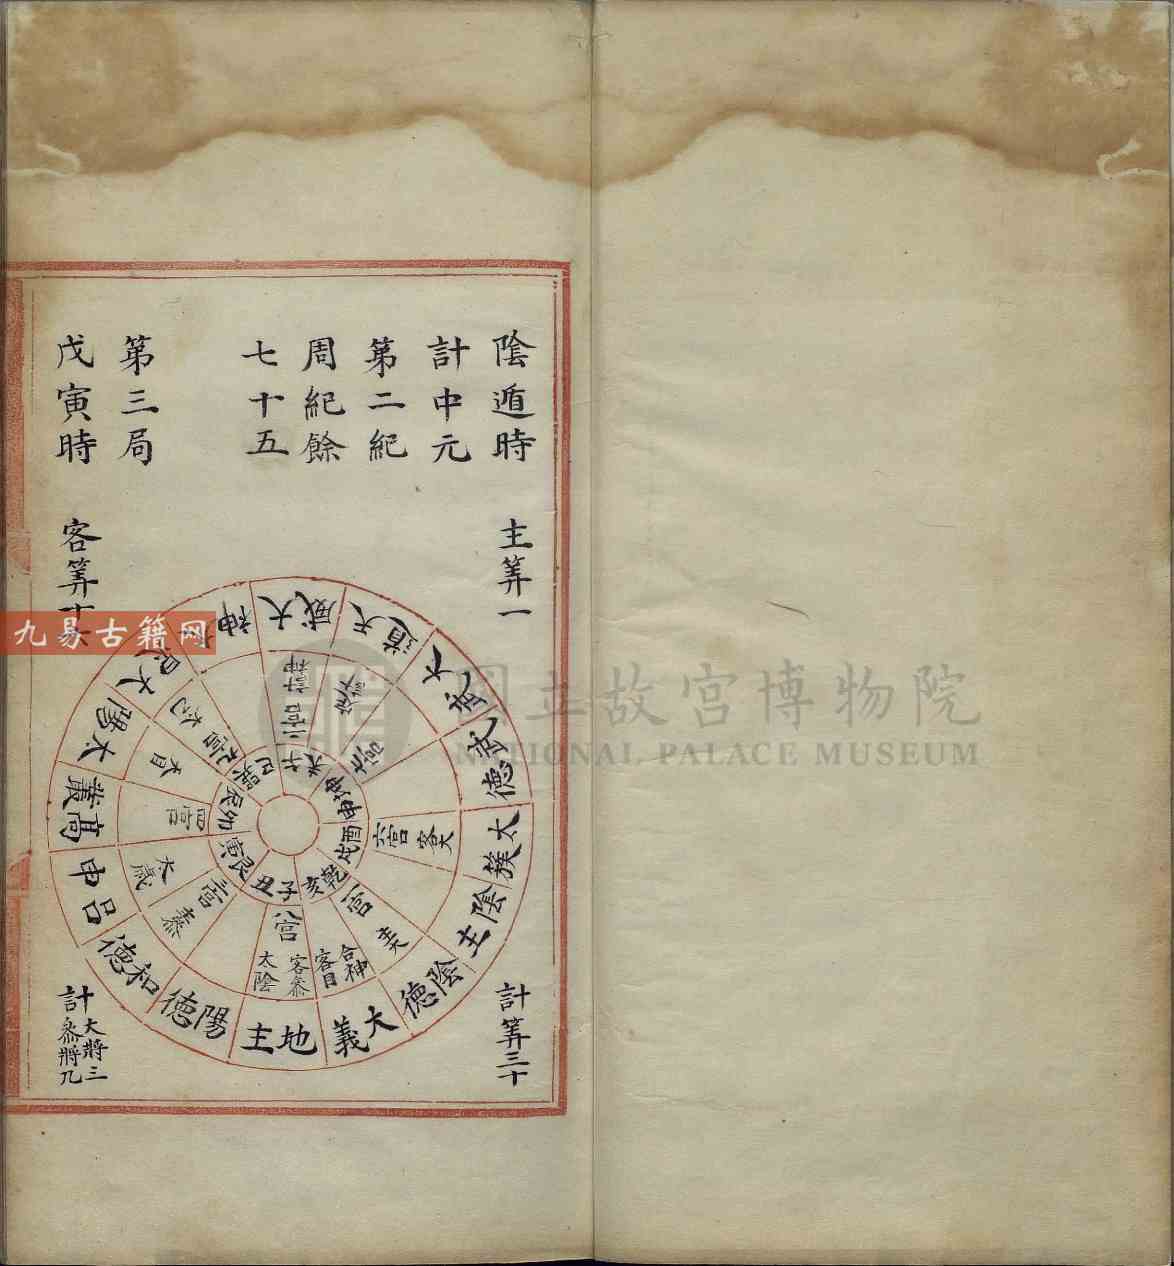 陰遁時
計中元
第二紀
周紀餘
七十五
第三局
戊寅時
主筭一
客筭十
計筭三十
計
大將三
叅將九
大威
天道
大武
武德
太簇
陰主
陰德
大義
地主
陽德
和德
呂申
高叢
太陽
大
神
計神
二宮
六宮
客大
一宮
合神
客目
八宮
客叅
太陰
三宮
太歲
四宮
九宮
午
未
坤
申
酉
戌
乾
亥
子
丑
艮
寅
卯
巳
九易古籍网
國立故宮博物院
NATIONAL PALACE MUSEUM